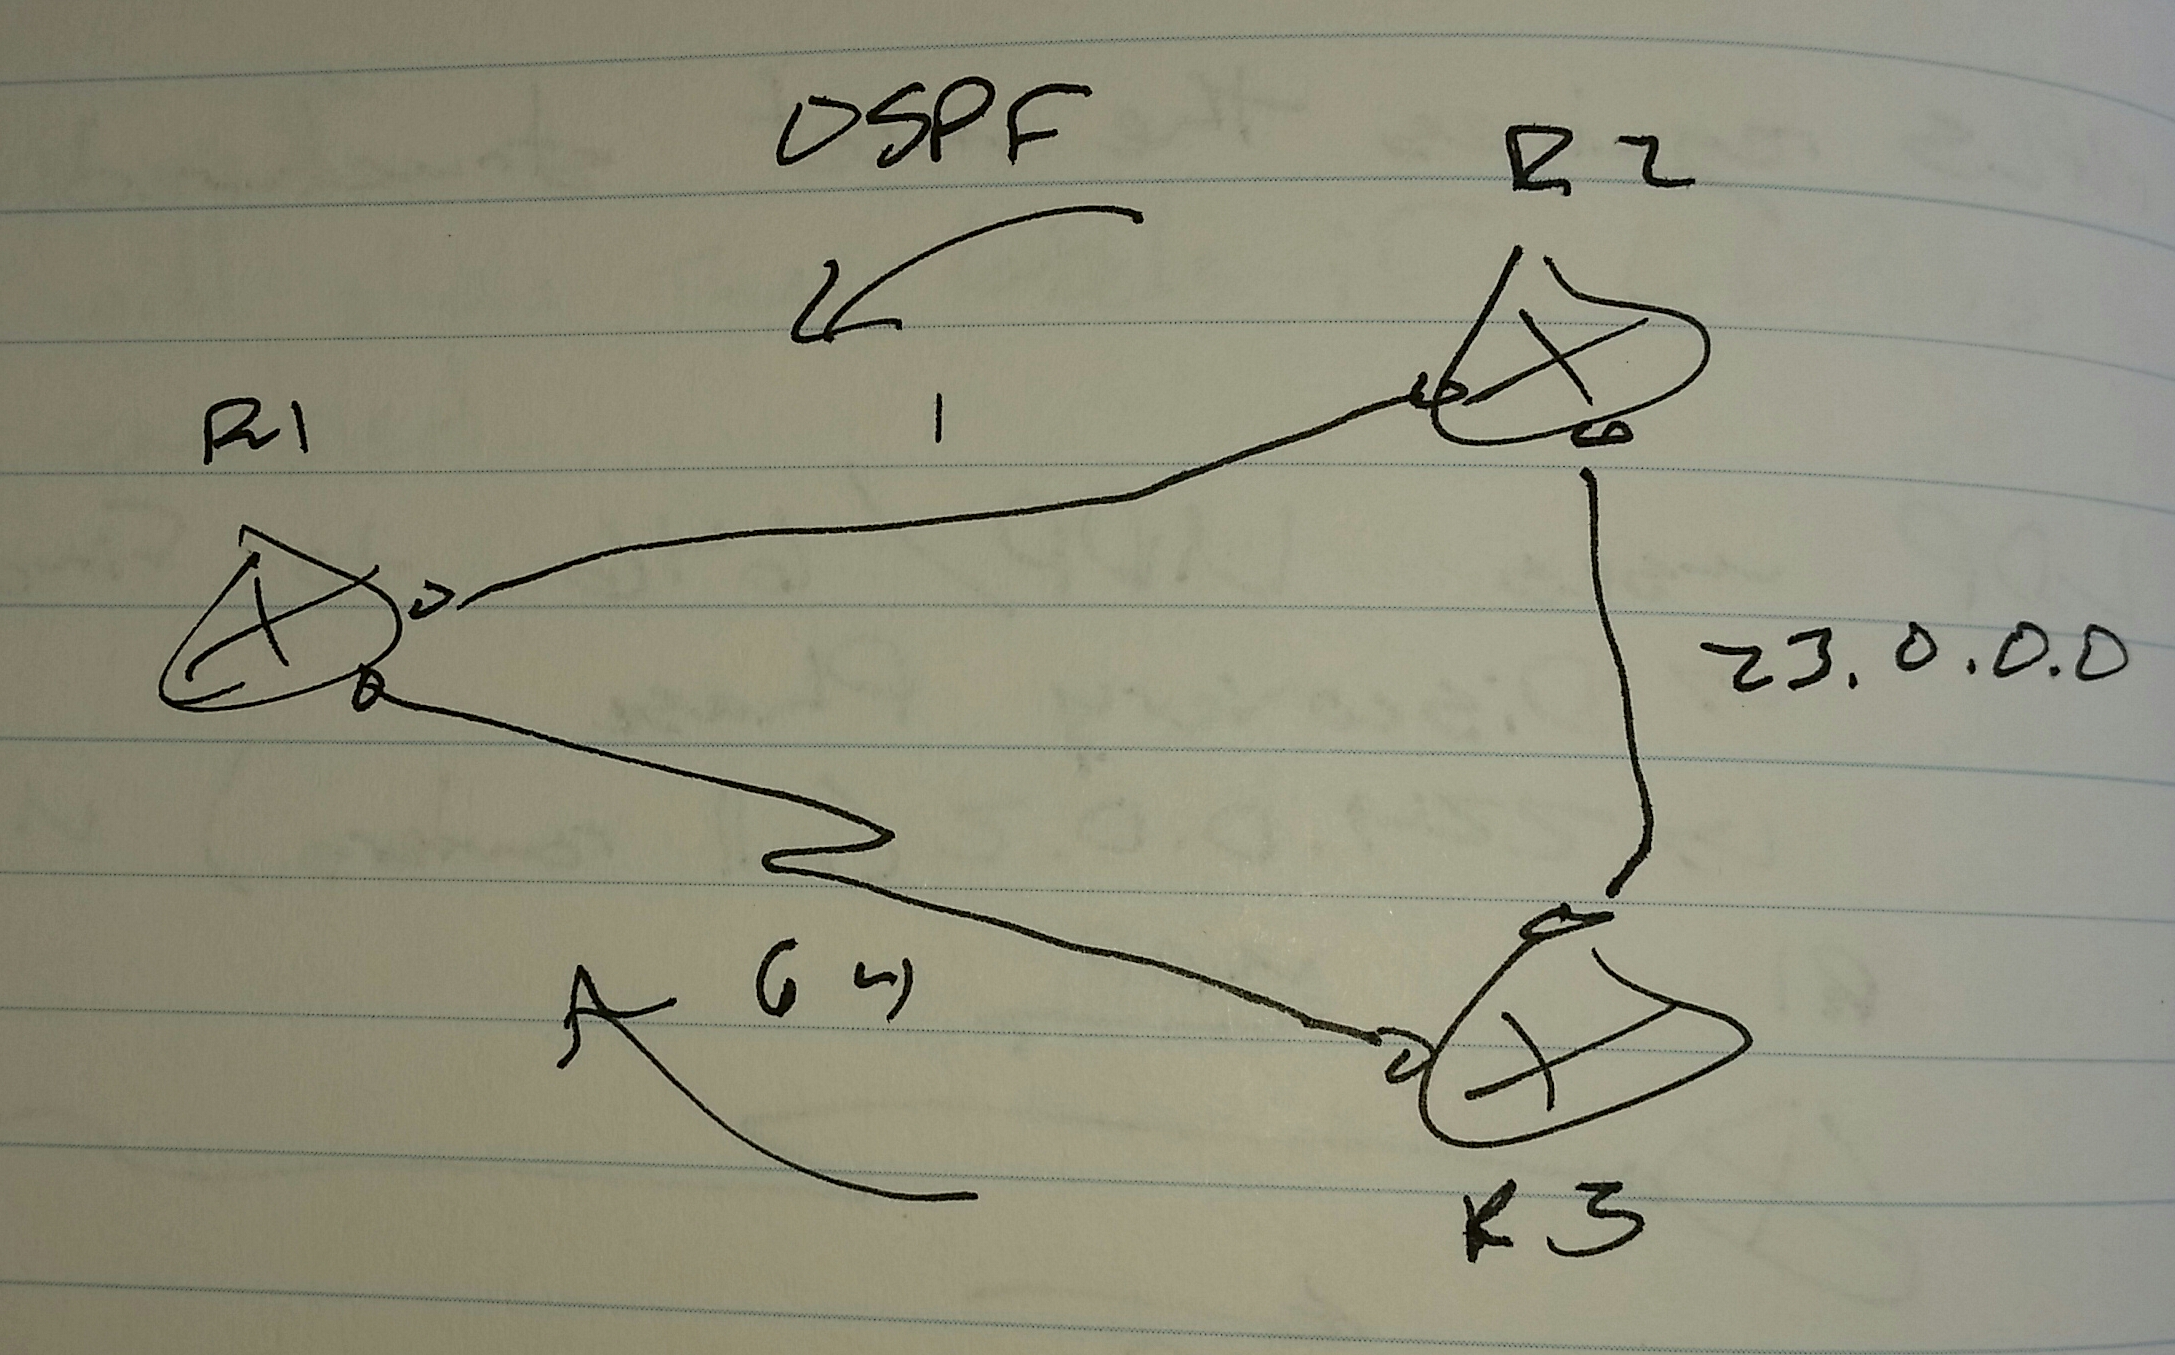 OSPF
R2
R1
1
23.0.0.0
64
R3